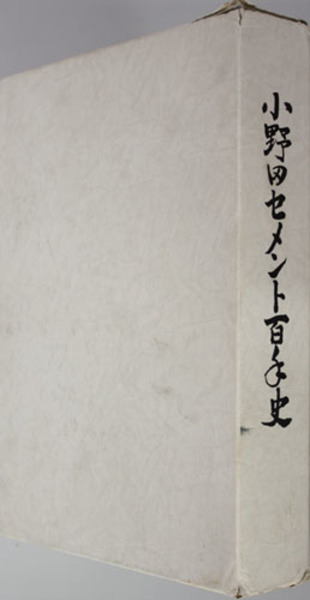 小野田セメント百年史